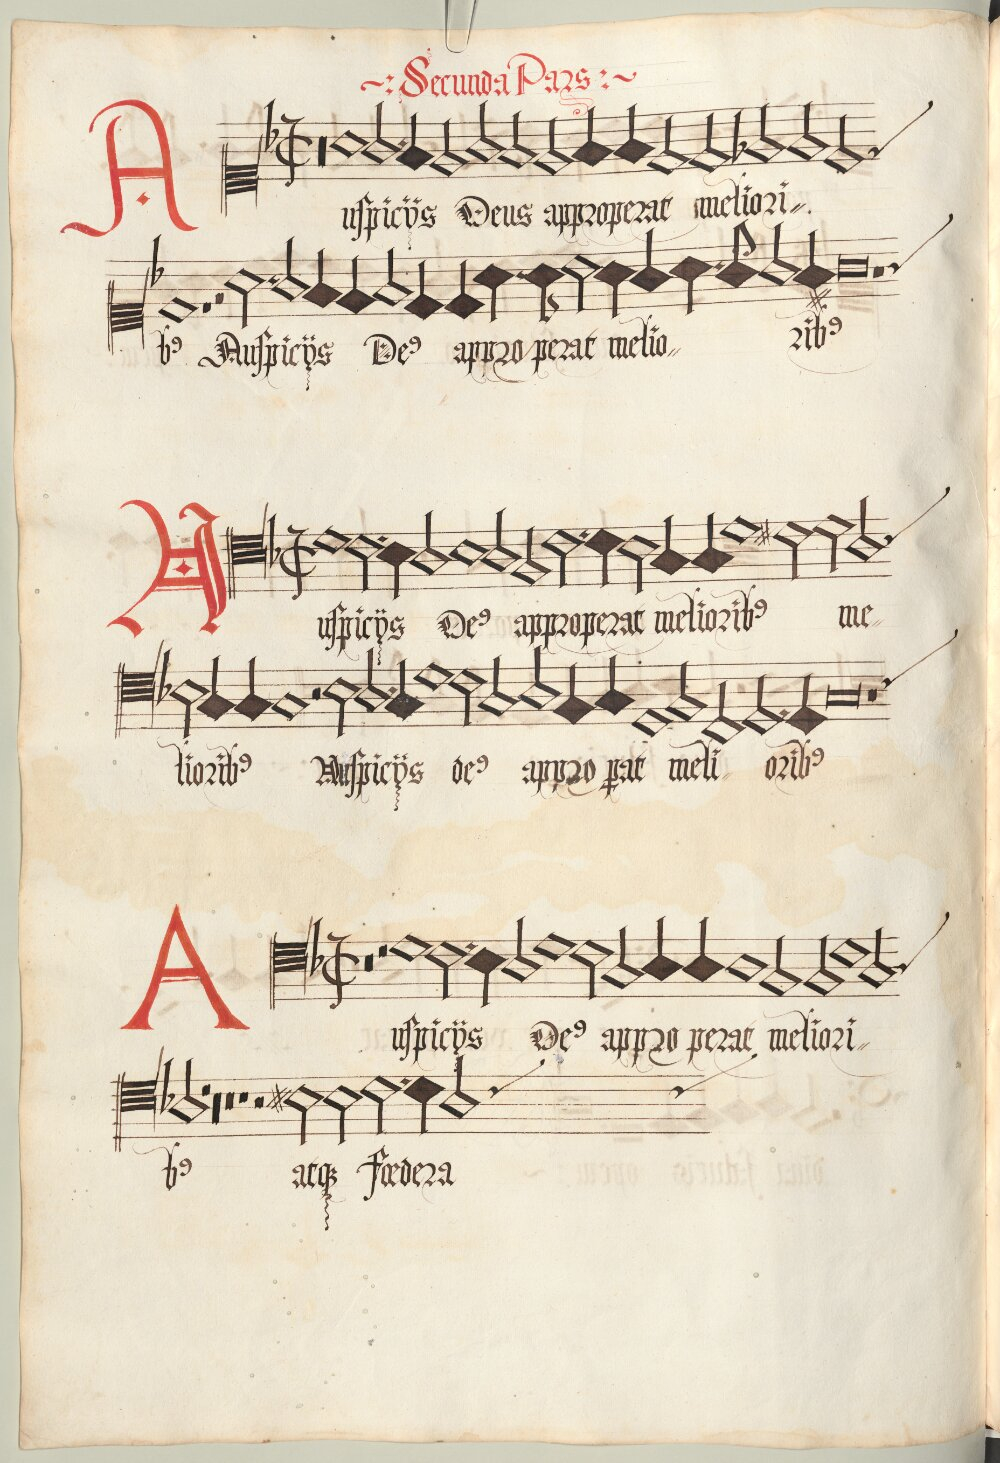 ~: Secunda Pars :~
Auspicijs Deus approperat meliori„
bꝰ Auspicijs Deꝰ appro perat melio„ ribꝰ
Auspicijs Deꝰ approperat melioribꝰ me„
lioribꝰ Auspicijs deꝰ appro ꝑat meli„ oribꝰ
Auspicijs Deꝰ appro perat meliori„
bꝰ atqꝫ Fœdera